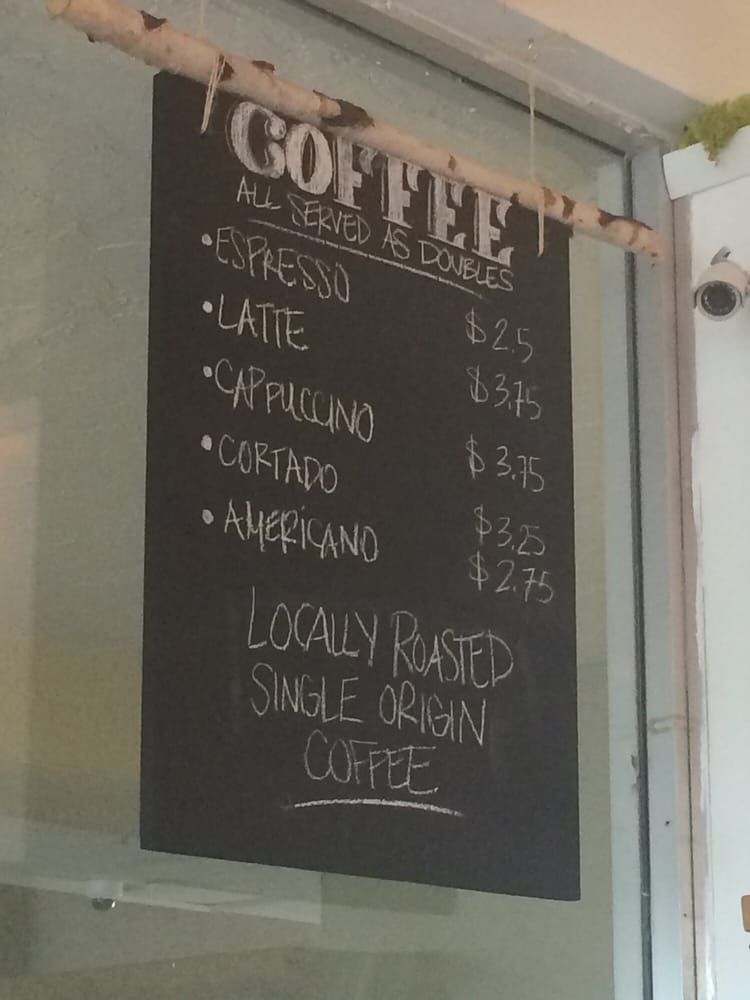 COFFEE
ALL SERVED AS DOUBLES
• ESPRESSO $2.5
• LATTE $3.75
• CAPPUCCINO $3.75
• CORTADO $3.25
• AMERICANO $2.75
LOCALLY ROASTED
SINGLE ORIGIN
COFFEE